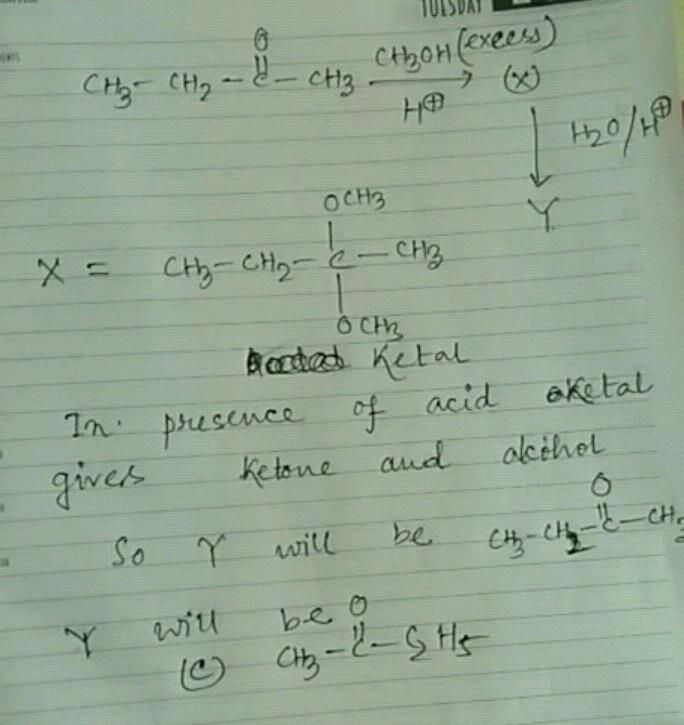 TUESDAY
O
CH3 - CH2 - C - CH3 CH3OH (excess) (X)
H⊕
H2O/H⊕
Y
OCH3
X = CH3 - CH2 - C - CH3
OCH3
Ketal
In presence of acid Ketal
gives Ketone and alcohol
O
So Y will be CH3 - CH2 - C - CH3
Y will be O
(C) CH3 - C - C2H5